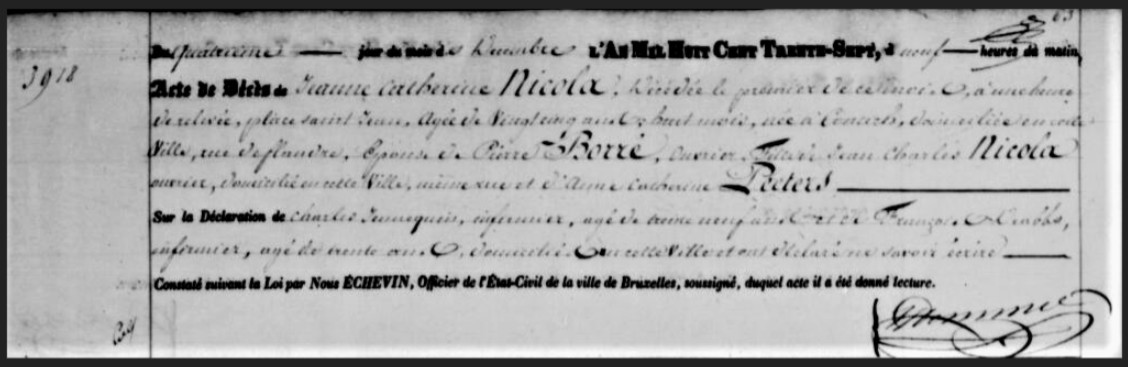 63
3918
Du quatrième jour du mois de Décembre L'AN MIL HUIT CENT TRENTE-SEPT, à neuf heures du matin,
Acte de Décès de Jeanne Catherine Nicola, décédée le premier de ce mois, à une heure
de relevée, place saint Jean, Agée de Vingt cinq ans & huit mois, née à domiciliée en cette
Ville, rue de flandre, Epouse de Pierre Borré, ouvrier, Fille de Jean Charles Nicola
ouvrier, domicilié en cette Ville, même rue et d'Anne Catherine Peeters
Sur la Déclaration de Charles infirmier, agé de trente neuf ans et de François
infirmier, agé de trente ans, domiciliés en cette Ville et ont déclaré ne savoir écrire
Constaté suivant la Loi par Nous ÉCHEVIN, Officier de l'État-Civil de la ville de Bruxelles, soussigné, duquel acte il a été donné lecture.